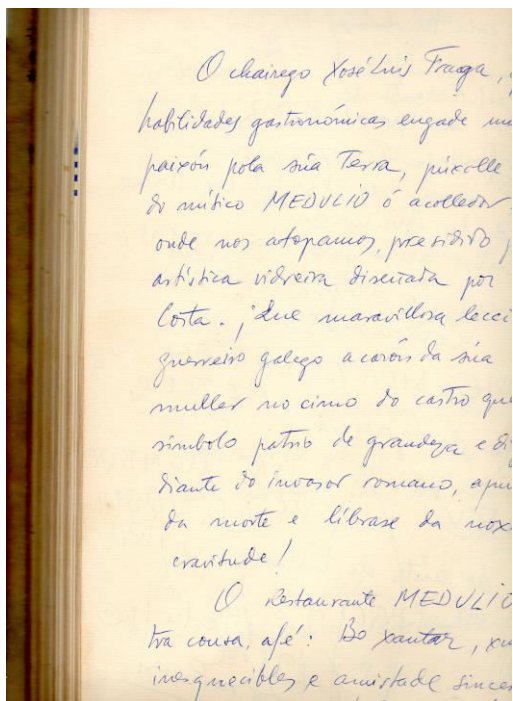 O chairego Xosé Luis Fraga,
habilidades gastronómicas engade
paixón pola súa Terra, púxolle
do mítico MEDULIO ó acolledor
onde nos atopamos, presidido
artística vidreira diseñada por
Costa. ¡Que maravillosa lecci
guerreiro galego a carón da súa
muller no cimo do castro que
símbolo patrio de grandeza e di
diante do invasor romano, apu
da morte e líbrase da
cravitude!
O Restaurante MEDULIO
tra cousa, afé: Bo xantar,
inesquecibles e amistade since